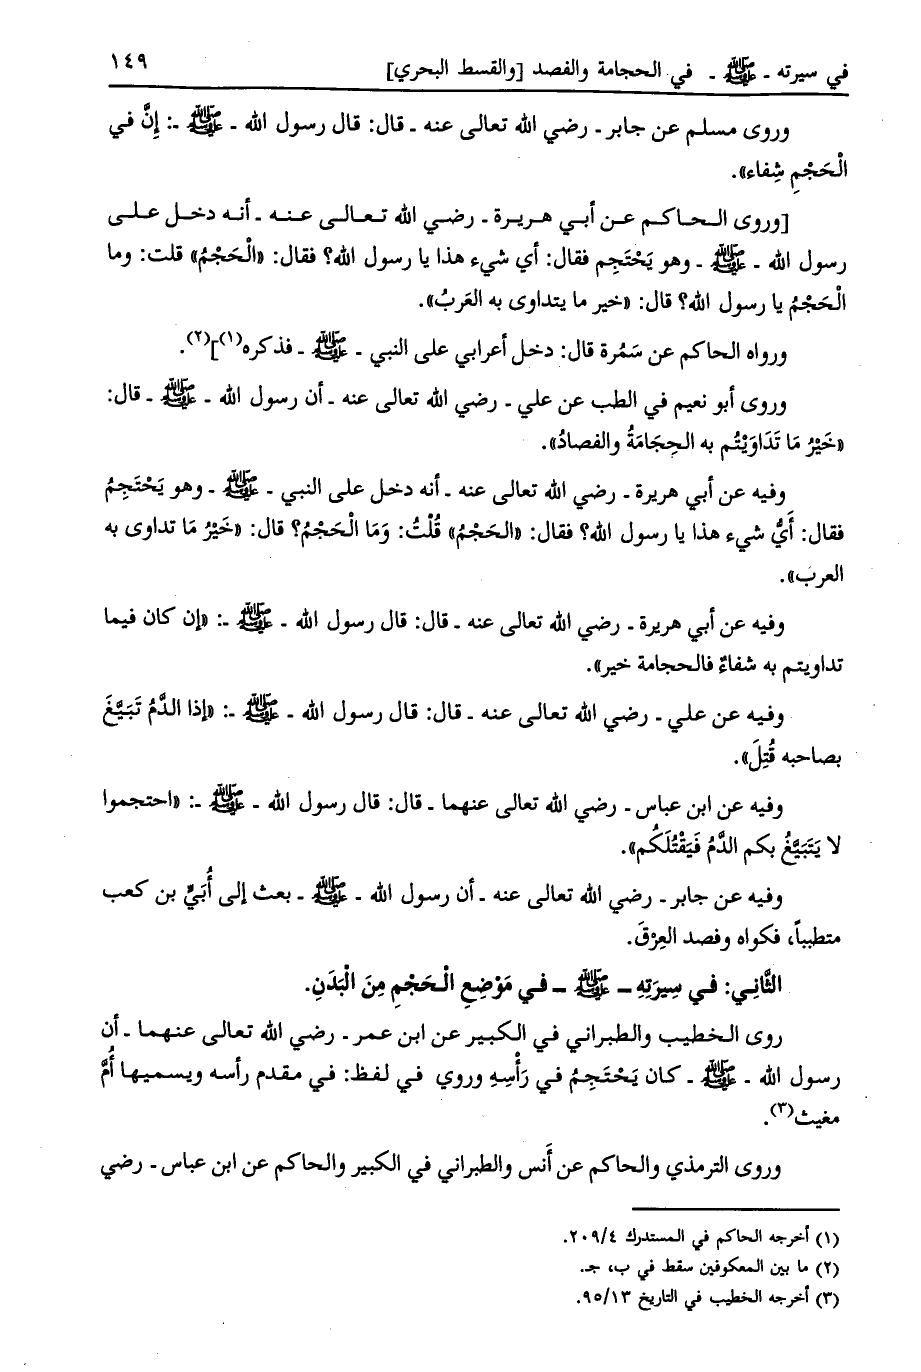 في سيرته - ﷺ - في الحجامة والفصد [والقسط البحري] ١٤٩
وروى مسلم عن جابر - رضي الله تعالى عنه - قال: قال رسول الله - ﷺ -: إِنَّ في
الْحَجْمِ شِفاء».
[وروى الحاكم عن أبي هريرة - رضي الله تعالى عنه - أنه دخل على
رسول الله - ﷺ - وهو يَحْتَجِم فقال: أي شيء هذا يا رسول الله؟ فقال: «الْحَجْمُ» قلت: وما
الْحَجْمُ يا رسول الله؟ قال: «خير ما يتداوى به العَربُ».
ورواه الحاكم عن سَمُرة قال: دخل أعرابي على النبي - ﷺ - فذكره(١)](٢).
وروى أبو نعيم في الطب عن علي - رضي الله تعالى عنه - أن رسول الله - ﷺ - قال:
«خَيْرُ مَا تَدَاوَيْتُم به الحِجَامَةُ والفصادُ».
وفيه عن أبي هريرة - رضي الله تعالى عنه - أنه دخل على النبي - ﷺ - وهو يَحْتَجِمُ
فقال: أَيُّ شيء هذا يا رسول الله؟ فقال: «الحَجْمُ» قُلْتُ: وَمَا الْحَجْمُ؟ قال: «خَيْرُ مَا تداوى به
العرب».
وفيه عن أبي هريرة - رضي الله تعالى عنه - قال: قال رسول الله - ﷺ -: «إن كان فيما
تداويتم به شفاءٌ فالحجامة خير».
وفيه عن علي - رضي الله تعالى عنه - قال: قال رسول الله - ﷺ -: «إذا الدَّمُ تَبَيَّغَ
بصاحبه قُتِلَ».
وفيه عن ابن عباس - رضي الله تعالى عنهما - قال: قال رسول الله - ﷺ -: «احتجموا
لا يَتَبَيَّغُ بكم الدَّمُ فَيَقْتُلَكُم».
وفيه عن جابر - رضي الله تعالى عنه - أن رسول الله - ﷺ - بعث إلى أُبَيِّ بن كعب
متطبباً، فكواه وفصد العِرْقَ.
الثَّانِي: في سِيرَتِهِ - ﷺ - في مَوْضِعِ الْحَجْمِ مِنَ الْبَدَنِ.
روى الخطيب والطبراني في الكبير عن ابن عمر - رضي الله تعالى عنهما - أن
رسول الله - ﷺ - كان يَحْتَجِمُ في رَأْسِهِ وروي في لفظ: في مقدم رأسه ويسميها أُمَّ
مغيث(٣).
وروى الترمذي والحاكم عن أَنس والطبراني في الكبير والحاكم عن ابن عباس - رضي
(١) أخرجه الحاكم في المستدرك ٢٠٩/٤.
(٢) ما بين المعكوفين سقط في ب، جـ.
(٣) أخرجه الخطيب في التاريخ ٩٥/١٣.